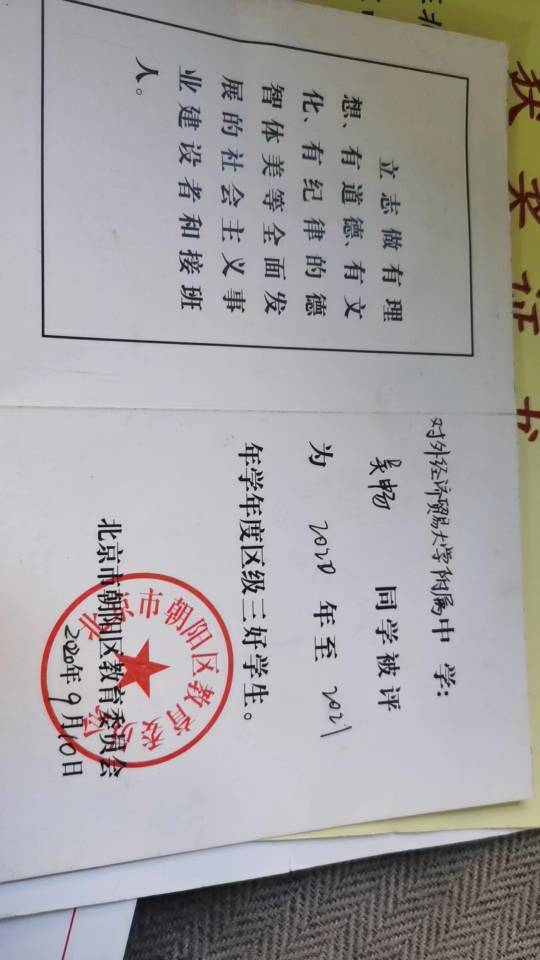 获奖证书
立志做有理
想、有道德、有文
化、有纪律的德
智体美等全面发
展的社会主义事
业建设者和接班
人。
对外经济贸易大学附属中学:
吴畅 同学被评
为 2020 年至 2021
年学年度区级三好学生。
北京市朝阳区教育委员会
2020年9月10日
北京市朝阳区教育委员会